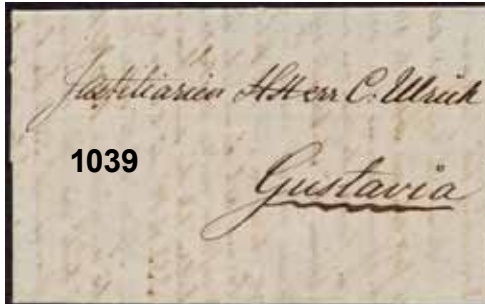 Justitiarien HHerr C. Ulrich
1039
Gustavia